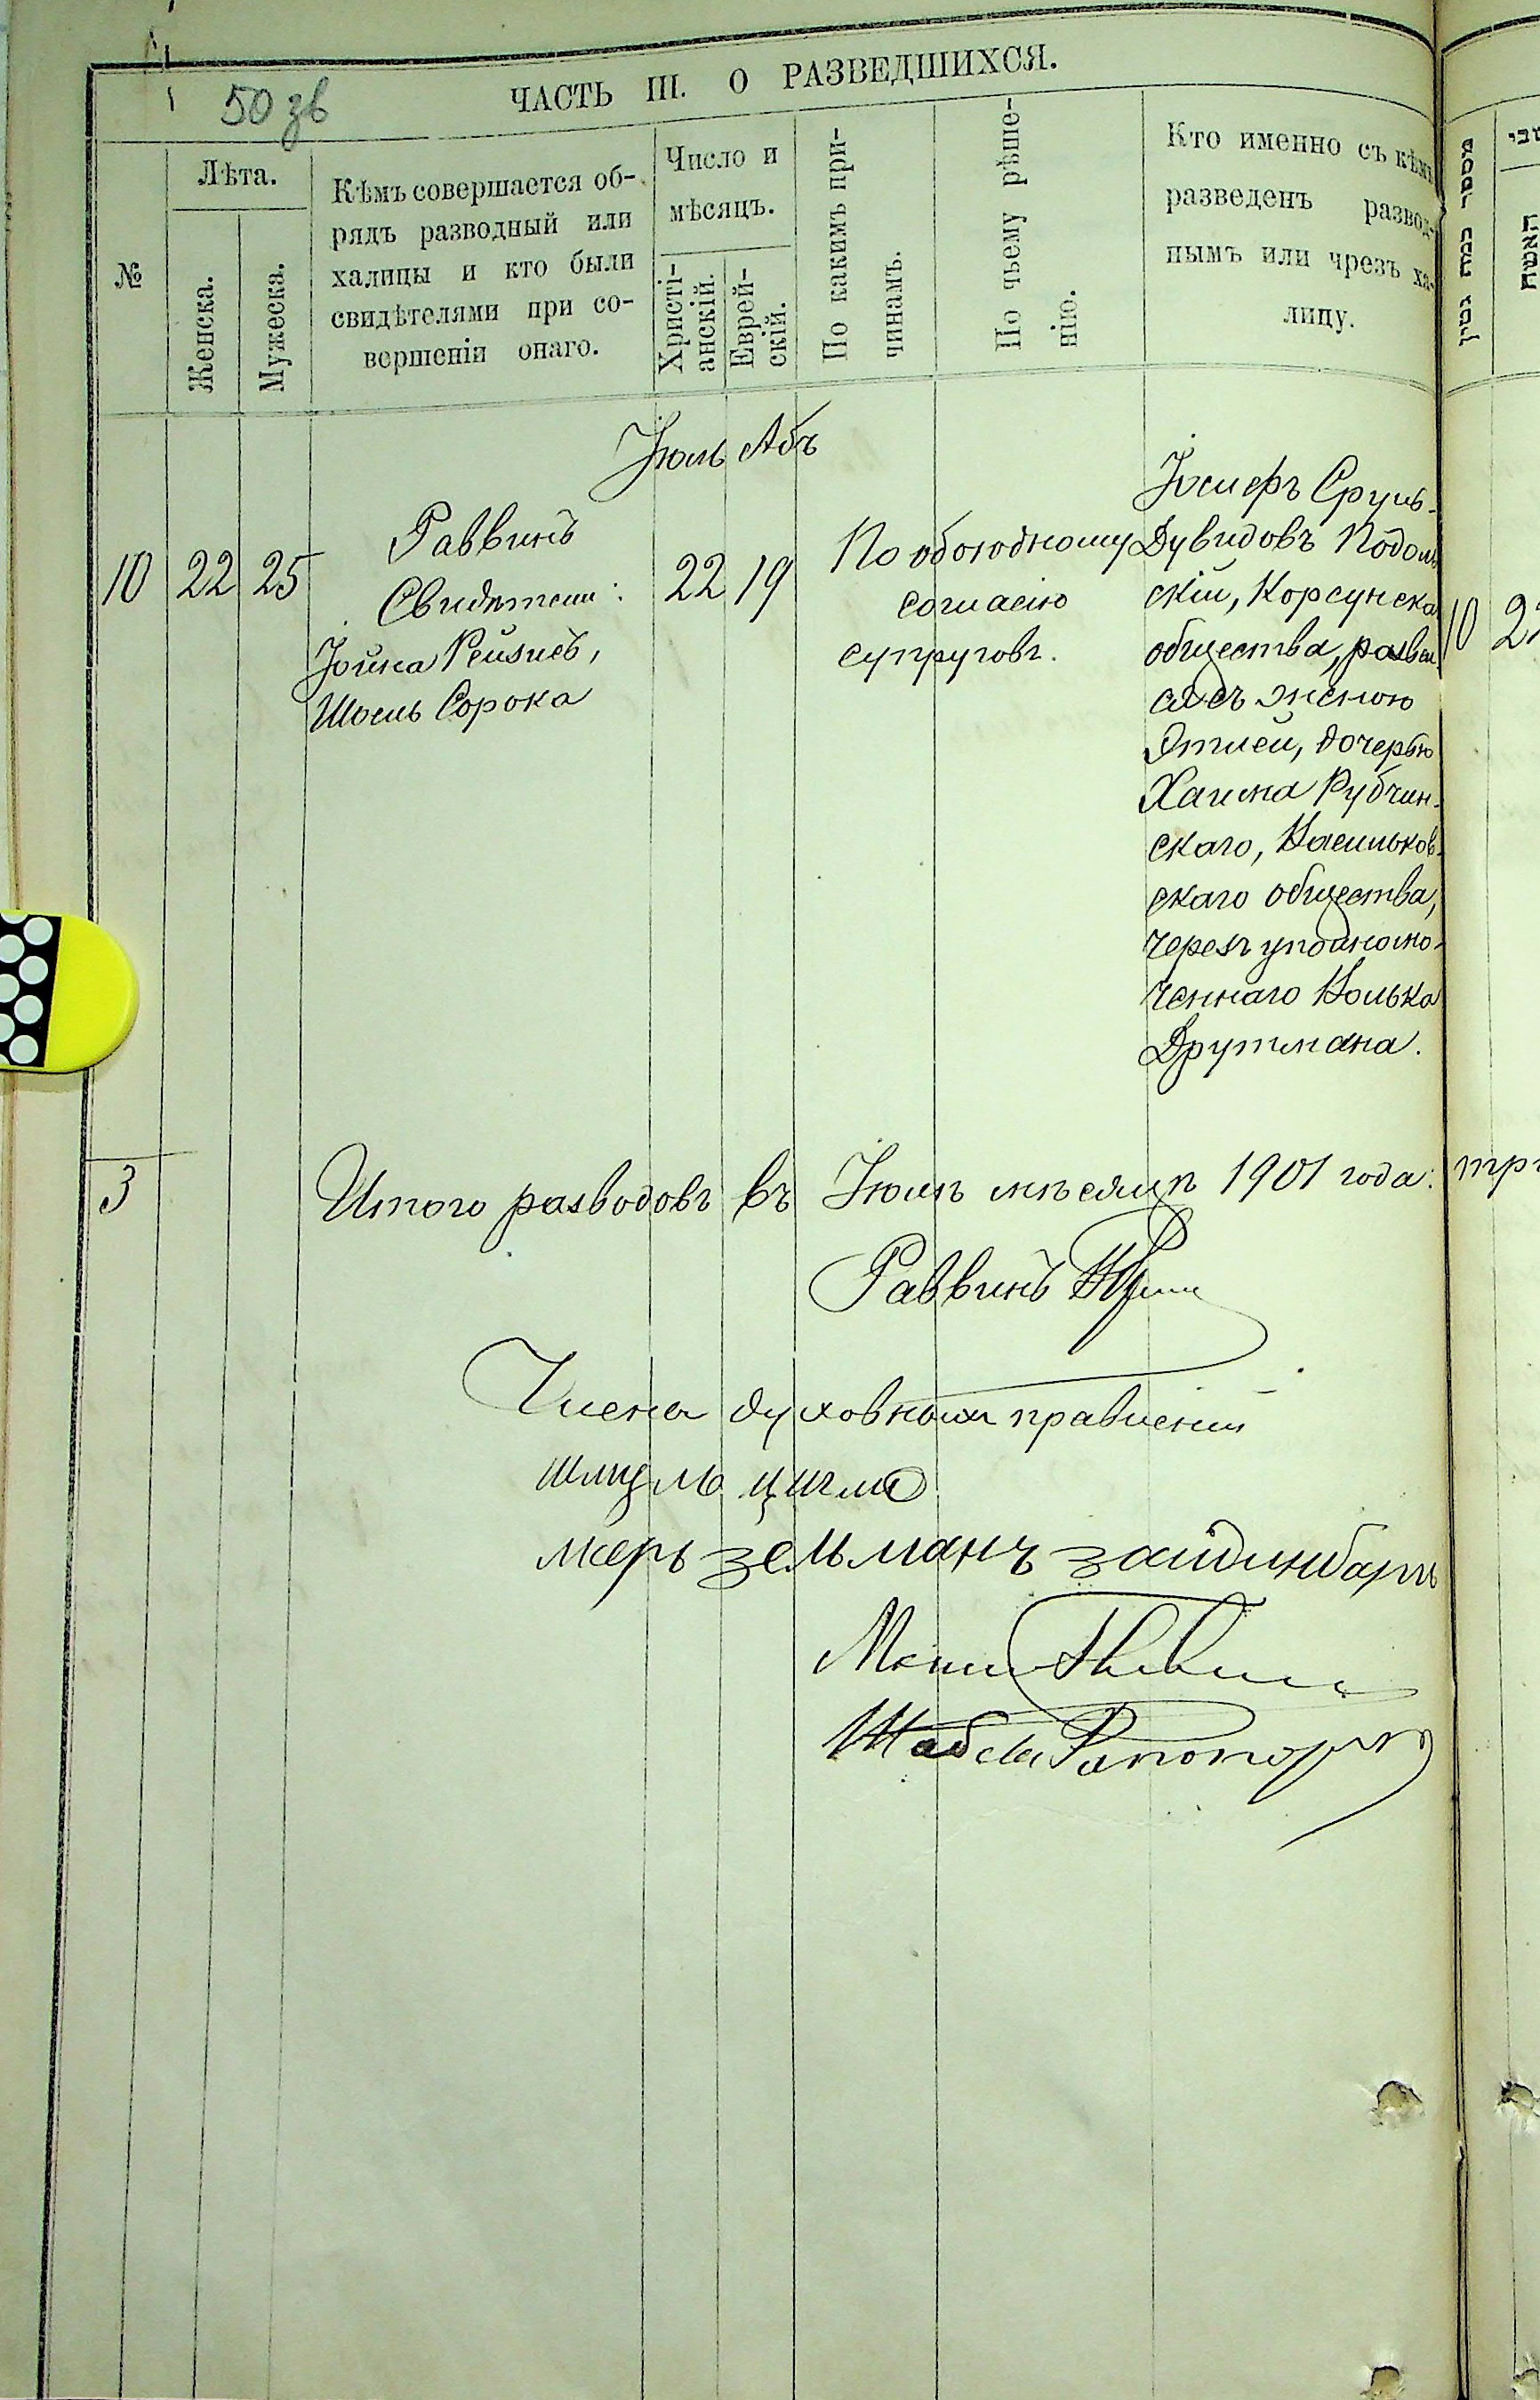 50 зв
ЧАСТЬ III. О РАЗВЕДШИХСЯ.
№
Лѣта.
Женска.
Мужеска.
Кѣмъ совершается об-
рядъ разводный или
халицы и кто были
свидѣтелями при со-
вершеніи онаго.
Число и
мѣсяцъ.
Христі-
анскій.
Еврей-
скій.
По какимъ при-
чинамъ.
По чьему рѣше-
нію.
Кто именно съ кѣмъ
разведенъ развод-
нымъ или чрезъ ха-
лицу.
מספר כמה גטין
האשה
Іюль Абъ
10 22 25
Раввинъ
Свидѣтели:
Іойна Рейзисъ,
Шоель Сорока
22 19
По обоюдному
согласію
супруговъ.
Іосифъ Сруль-
Дувидовъ Подоль
скій, Корсунска
общества, развел
ся съ женою
Этлей, дочерью
Хаима Рубчин-
скаго, Васильков-
скаго общества,
черезъ уполномо-
ченнаго Волька
Друтмана.
10
3
Итого разводовъ въ Іюлѣ мѣсяцѣ 1901 года: тр
Раввинъ
Члены духовныхъ правленій
шмуль
меръ зельманъ зайдинбаргъ
Рапопортъ